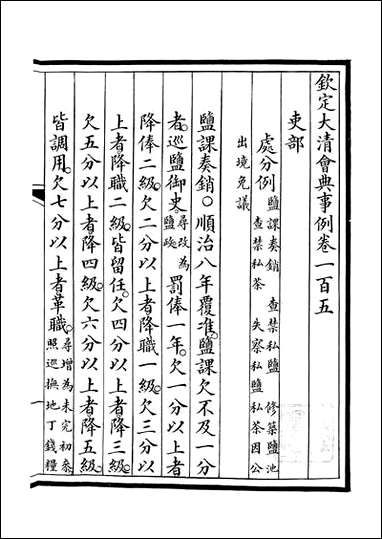 欽定大清會典事例卷一百五
吏部
處分例 鹽課奏銷 查禁私鹽 修築鹽池
查禁私茶 失察私鹽私茶因公
出境免議
鹽課奏銷○順治八年覆准鹽課欠不及一分
者巡鹽御史尋改為鹽政罰俸一年欠一分以上者
降俸二級欠二分以上者降職一級欠三分以
上者降職二級皆留任欠四分以上者降三級
欠五分以上者降四級欠六分以上者降五級
皆調用欠七分以上者革職尋增為未完初參照巡撫地丁錢糧